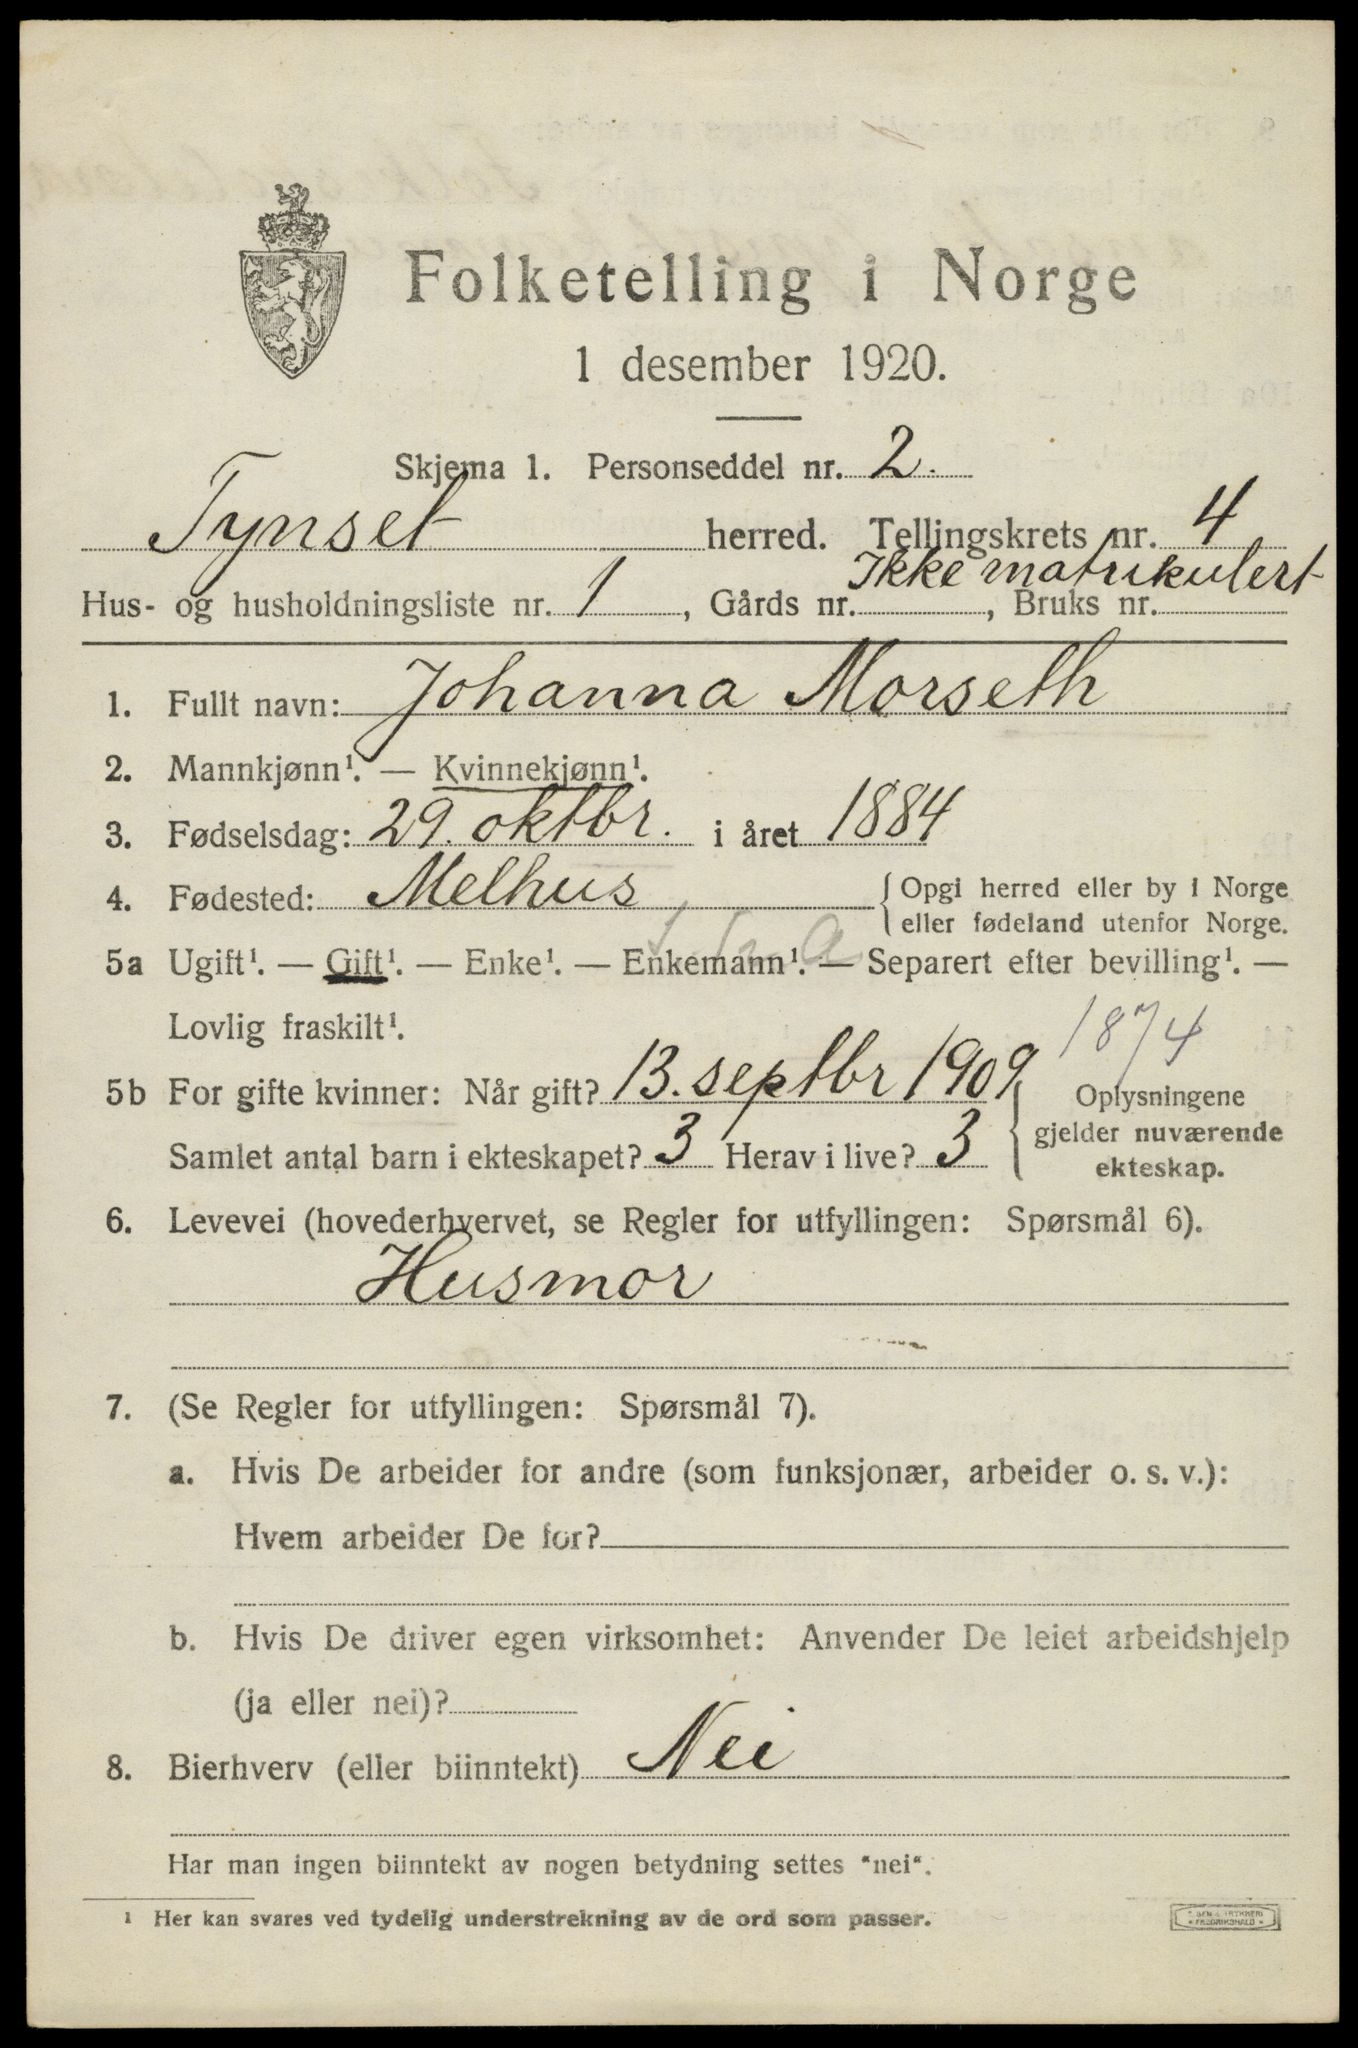 Folketelling i Norge
1 desember 1920.
Skjema 1. Personseddel nr. 2.
Tynset herred. Tellingskrets nr. 4
Ikke matrikulert
Hus- og husholdningsliste nr. 1, Gårds nr. , Bruks nr.
1. Fullt navn: Johanna Morseth
2. Mannkjønn¹. — Kvinnekjønn¹.
3. Fødselsdag: 29. oktbr. i året 1884
4. Fødested: Melhus { Opgi herred eller by i Norge
eller fødeland utenfor Norge.
5a Ugift¹. — Gift¹. — Enke¹. — Enkemann¹. — Separert efter bevilling¹. —
Lovlig fraskilt¹.
1874
5b For gifte kvinner: Når gift? 13. septbr 1909 { Oplysningene
gjelder nuværende
Samlet antal barn i ekteskapet? 3 Herav i live? 3 ekteskap.
6. Levevei (hovederhvervet, se Regler for utfyllingen: Spørsmål 6).
Husmor
7. (Se Regler for utfyllingen: Spørsmål 7).
a. Hvis De arbeider for andre (som funksjonær, arbeider o. s. v.):
Hvem arbeider De for?
b. Hvis De driver egen virksomhet: Anvender De leiet arbeidshjelp
(ja eller nei)?
8. Bierhverv (eller biinntekt) Nei
Har man ingen biinntekt av nogen betydning settes "nei".
¹ Her kan svares ved tydelig understrekning av de ord som passer.